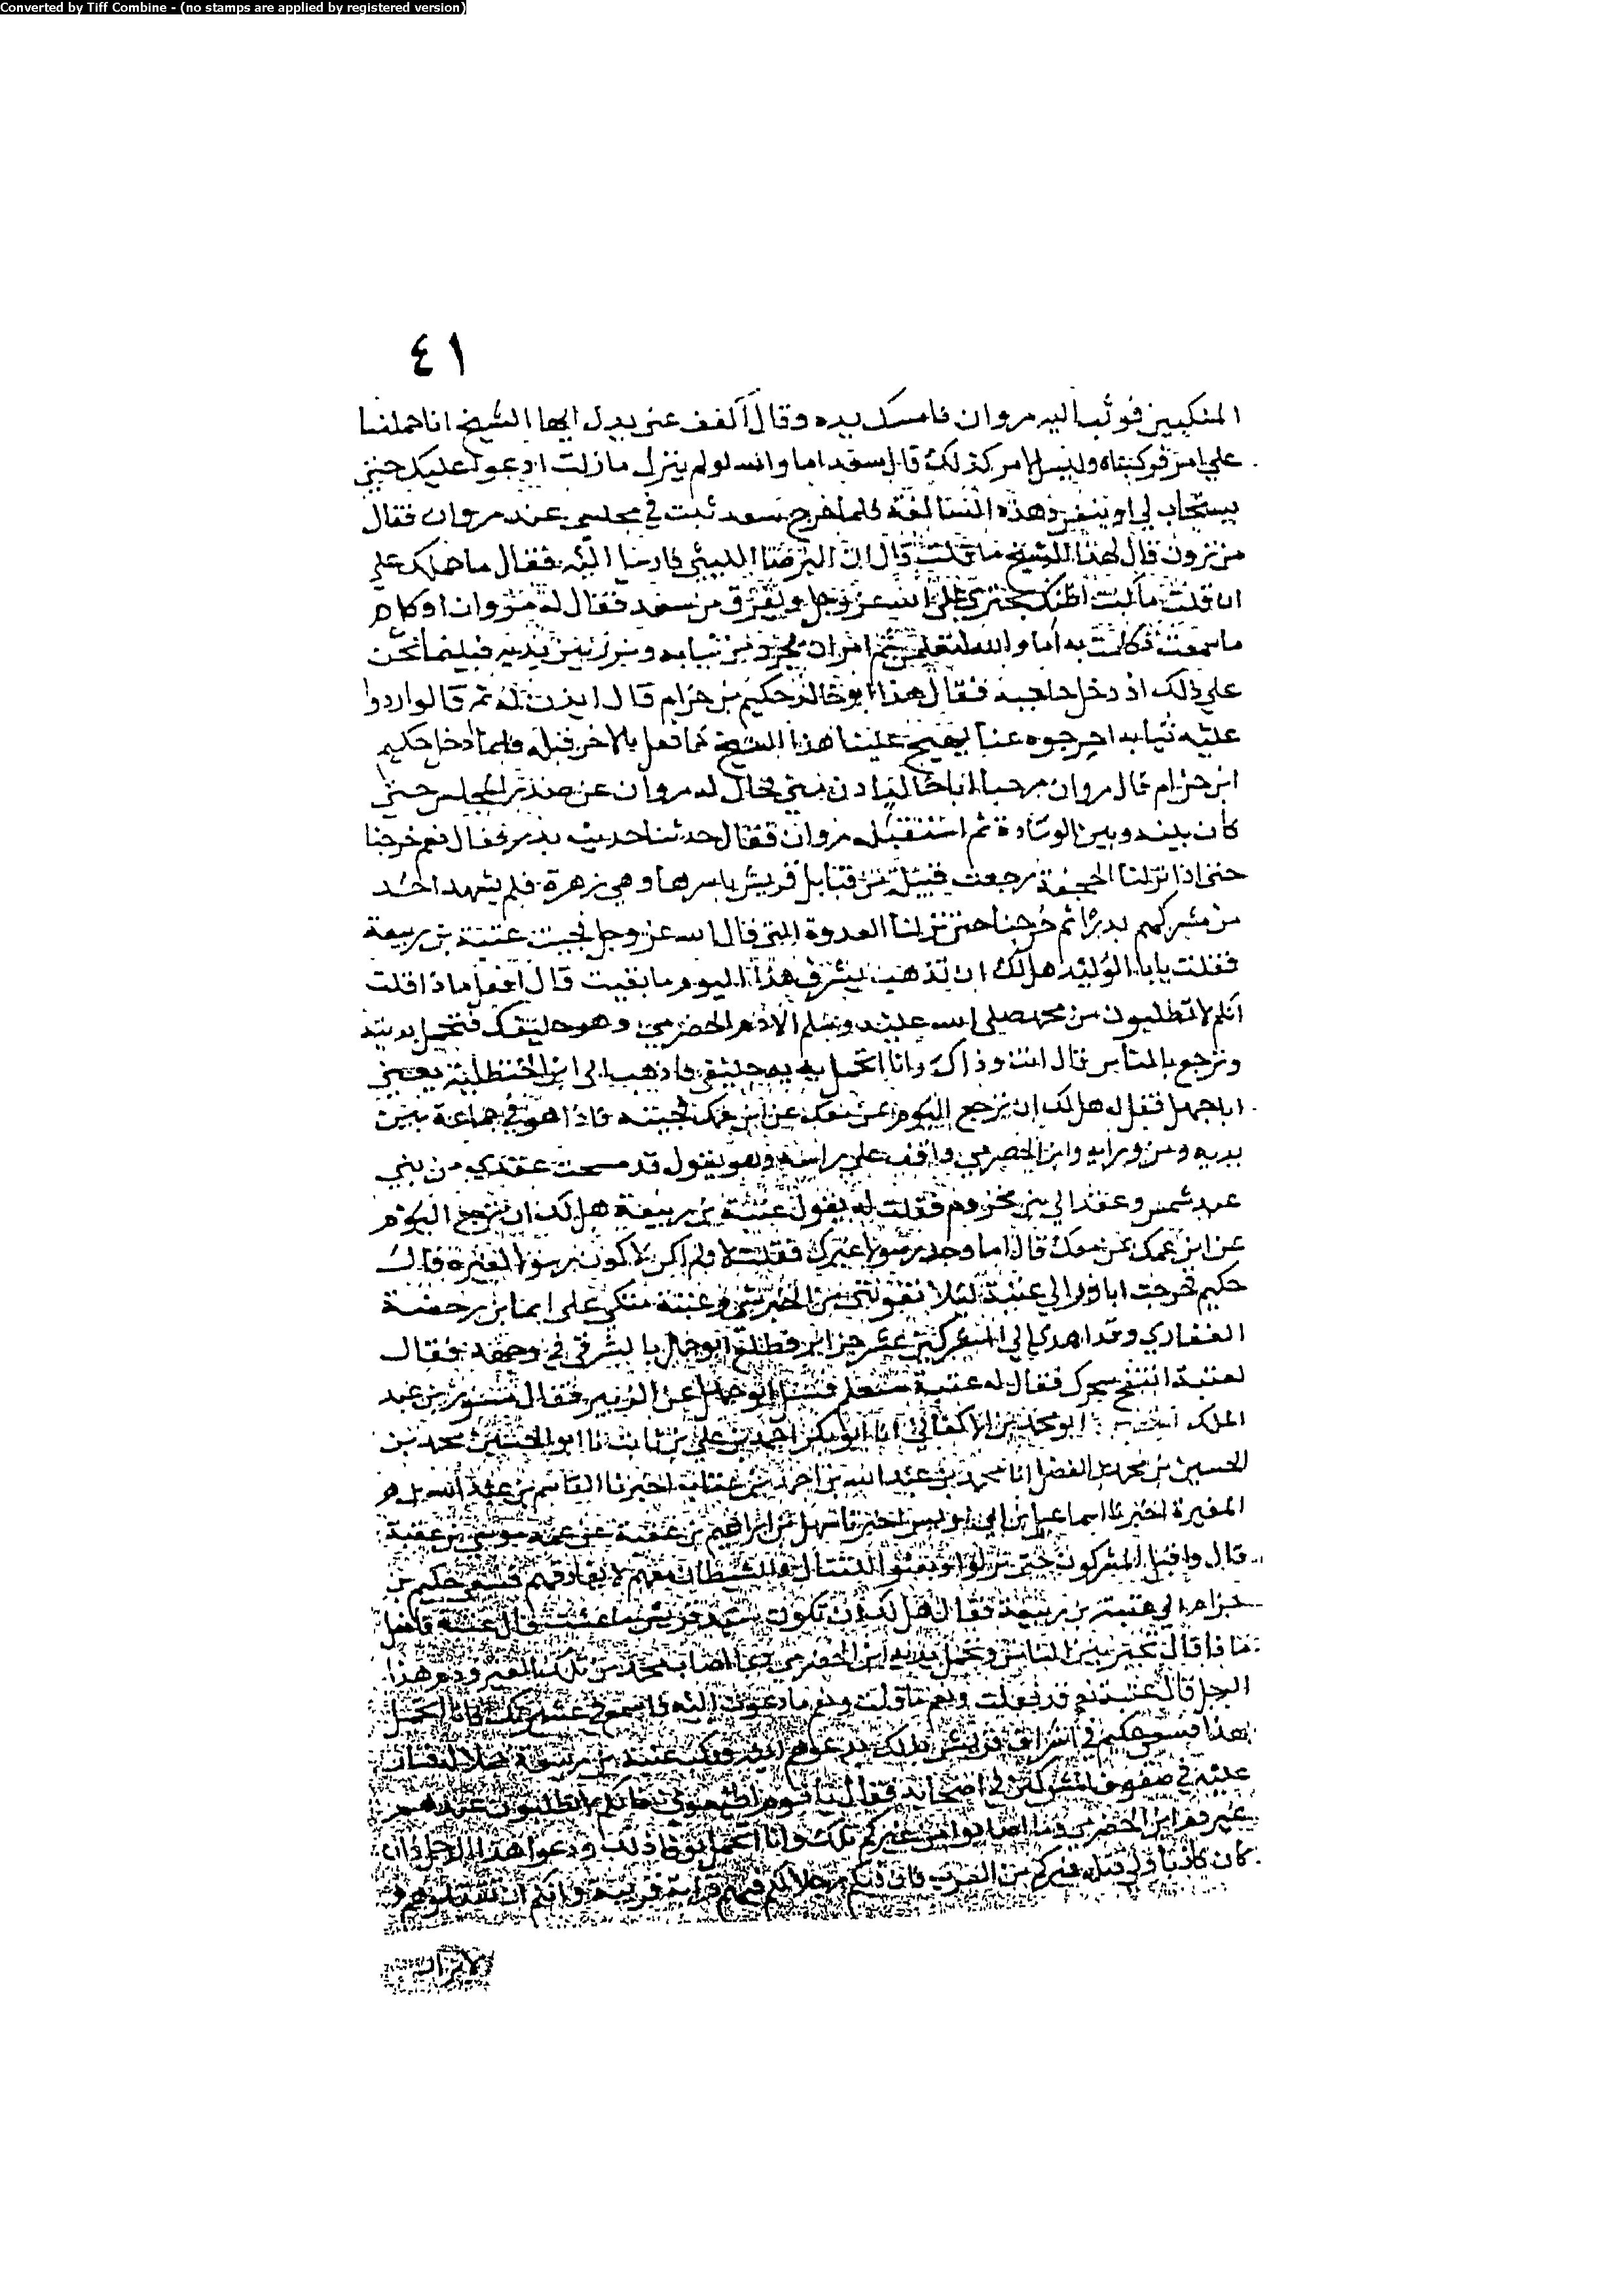 Converted by Tiff Combine - (no stamps are applied by registered version)
٤١
المنكبين فوثب اليه مروان فامسك يده وقال اكفف عني يدك ايها الشيخ انا حملنا
علي امر فركبناه وليس الامر كذلك قال سعد اما والله لو لم ينزل ما زلت ادعو عليك حتي
يستجاب لي او تنفرد هذه السالفة فلما خرج سعد ثبت في مجلسي عند مروان فقال
من ترون قال لهذا الشيخ ما قلت قال ابن البرصا الليثي فارسل اليه فقال ما حملك علي
ان قلت ما كنت اظنك تجتري علي الله عز وجل وتفرق من سعد فقال له مروان اوكلما
ما سمعت تكلمت به اما والله لتعلمن ثم امر ان يجرد من ثيابه وبرز بين يديه فبينما نحن
علي ذلك اذ دخل حاجبه فقال هذا ابو خالد حكيم بن حزام قال ايذن له ثم قال ردوا
عليه ثيابه اخرجوه عنا يهيج علينا هذا الشيخ كما فعل بالاخر قبله فلما دخل حكيم
ابن حزام قال مروان مرحبا بابا خالد ادن مني فحال له مروان عن صدر المجلس حتي
كان بينه وبين الوسادة ثم استقبله مروان فقال حدثنا حديث بدر فقال نعم خرجنا
حتي اذا نزلنا الجحفة رجعت قبيلة من قبايل قريش باسرها وهي زهرة فلم يشهد احد
من مشركيهم بدرا ثم خرجنا حتي نزلنا العدوة التي قال الله عز وجل فجيت عتبة بن ربيعة
فقلت يابا الوليد هل لك ان تذهب بشرف هذا اليوم ما بقيت قال افعل ماذا قلت
انكم لا تطلبون من محمد صلي الله عليه وسلم الا دم الحضرمي وهو حليفك فتحمل بديته
وترجع بالناس قال انت وذاك وانا اتحمل بديه حليفي فاذهب الي ابن الحنظلية يعني
ابا جهل فقل له هل لك ان ترجع اليوم بمن معك عن ابن عمك فجيته فاذا هو في جماعة بين
يديه ومن ورايه وابن الحضرمي واقف علي راسه وهو يقول قد فسخت عقدي من بني
عبد شمس وعقدي الي بني مخزوم فقلت له يقول عتبة بن ربيعة هل لك ان ترجع اليوم
عن ابن عمك بمن معك قال اما وجد رسولا غيرك فقلت لا ولم اكن لاكون رسولا لغيره قال
حكيم فخرجت ابادر الي عتبة ليلا يفوتني من الخبر شي وعتبة متكي علي ايما بن رحضة
الغفاري وقد اهدي الي المشركين عشر جزاير فطلع ابو جهل بالشر في وجهه فقال
لعتبة انتفخ سحرك فقال له عتبة ستعلم فسل ابو جهل
الملك ابو محمد بن الاكفاني انا ابو بكر احمد بن علي بن ثابت نا ابو الحسين محمد بن
الحسين بن محمد بن الفضل انا محمد بن عبد الله بن احمد بن عتاب اخبرنا القاسم بن عبد الله بن
المغيرة اخبرنا اسماعيل بن ابي اويس اخبرنا اسماعيل بن ابراهيم بن عقبة عن عمه موسي بن عقبة
قال واقبل المشركون حتي نزلوا وتعبوا للقتال والشيطان معهم لا يفارقهم فسعي حكيم بن
حزام الي عتبة بن ربيعة فقال هل لك ان تكون سيد قريش ما عشت قال عتبة فافعل
ماذا قال تجير بين الناس وتحمل بدية ابن الحضرمي وبما اصاب محمد من تلك العير ودم هذا
الرجل قال عتبة نعم قد فعلت ونعم ما قلت ونعم ما دعوت اليه فاسع في عشيرتك فانا اتحمل
بهذا فسعي حكيم في اشراف قريش بذلك يدعوهم اليه وركب عتبة بن ربيعة جملا له فسار
عليه في صفوف المشركين في اصحابه فقال يا قوم اطيعوني فانكم لا تطلبون عندهم
غير دم ابن الحضرمي وما اصابوا من عيركم تلك وانا اتحمل بوفا ذلك ودعوا هذا الرجل فان
كان كاذبا ولي قتله غيركم من العرب فان فيكم رجالا لكم فيهم قرابة قريبة وانكم ان تقتلوهم
لا يزال